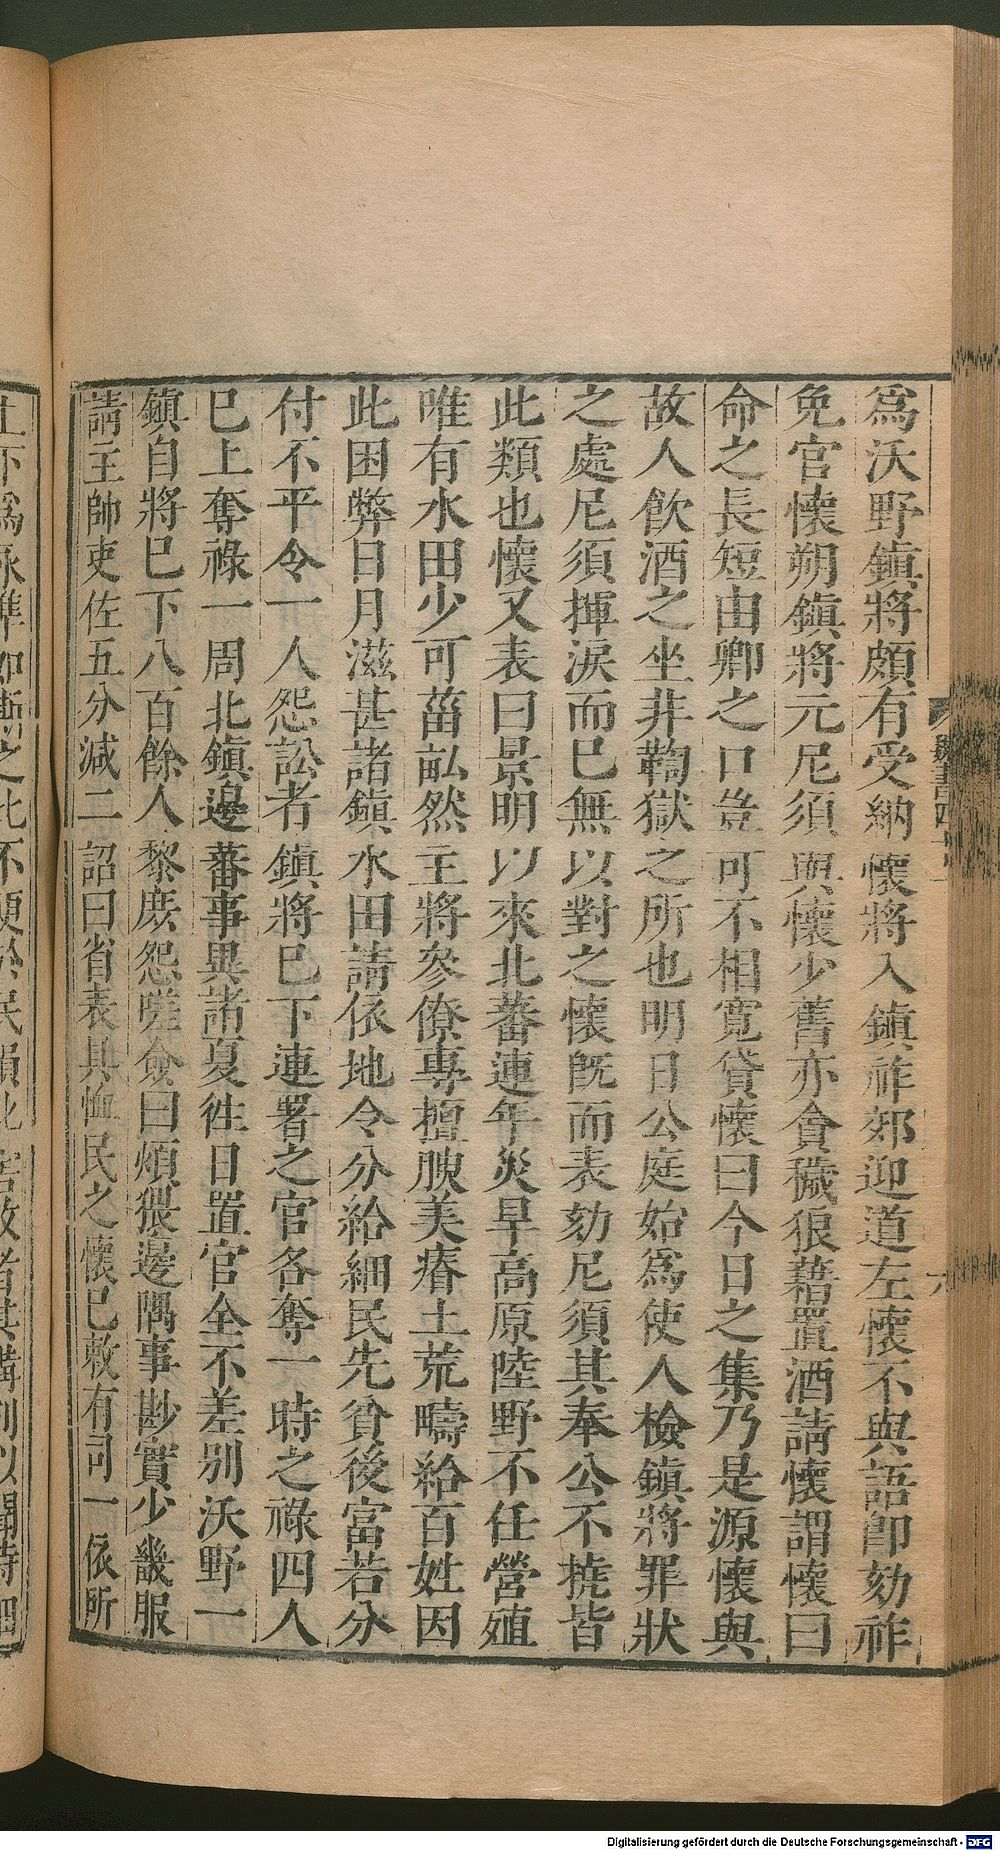 爲沃野鎮將頗有受納懷將入鎮祚郊迎道左懷不與語即劾祚
免官懷朔鎮將元尼須與懷少舊亦貪穢狼藉置酒請懷謂懷曰
命之長短由卿之口豈可不相寛貸懷曰今日之集乃是源懷與
故人飲酒之坐非鞫獄之所也明日公庭始爲使人檢鎮將罪狀
之處尼須揮淚而已無以對之懷既而表劾尼須其奉公不撓皆
此類也懷又表曰景明以來北蕃連年災旱高原陸野不任營殖
唯有水田少可菑畝然主將參僚專擅腴美瘠土荒疇給百姓因
此困弊日月滋甚諸鎮水田請依地令分給細民先貧後富若分
付不平令一人怨訟者鎮將已下連署之官各奪一時之祿四人
已上奪祿一周北鎮邊蕃事異諸夏徃日置官全不差别沃野一
鎮自將已下八百餘人黎庶怨嗟僉曰煩猥邊隅事尠實少畿服
請主帥吏佐五分減二詔曰省表具恤民之懷已敕有司一依所
魏書四十一
六
Digitalisierung gefördert durch die Deutsche Forschungsgemeinschaft - DFG